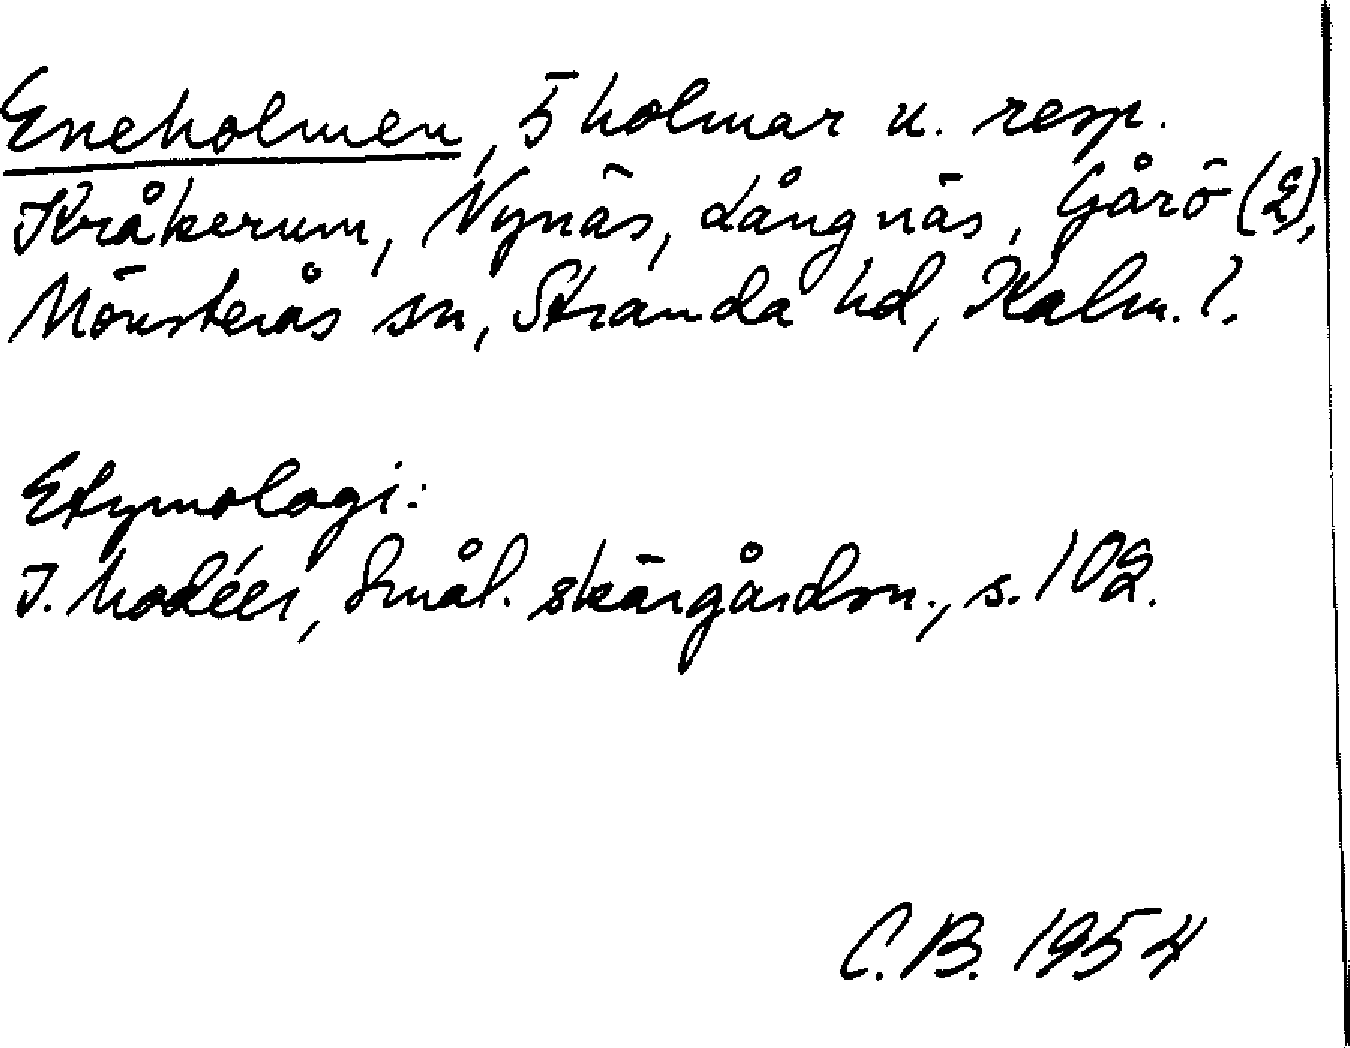 Eneholmen, 5 holmar u. resp.
Kråkerum, Nynäs, Långnäs, Gårö (2),
Mönsterås sn, Stranda hd, Kalm. l.
Etymologi:
I. Modéer, Smål. skärgårdsn., s. 102.
C.B. 1954